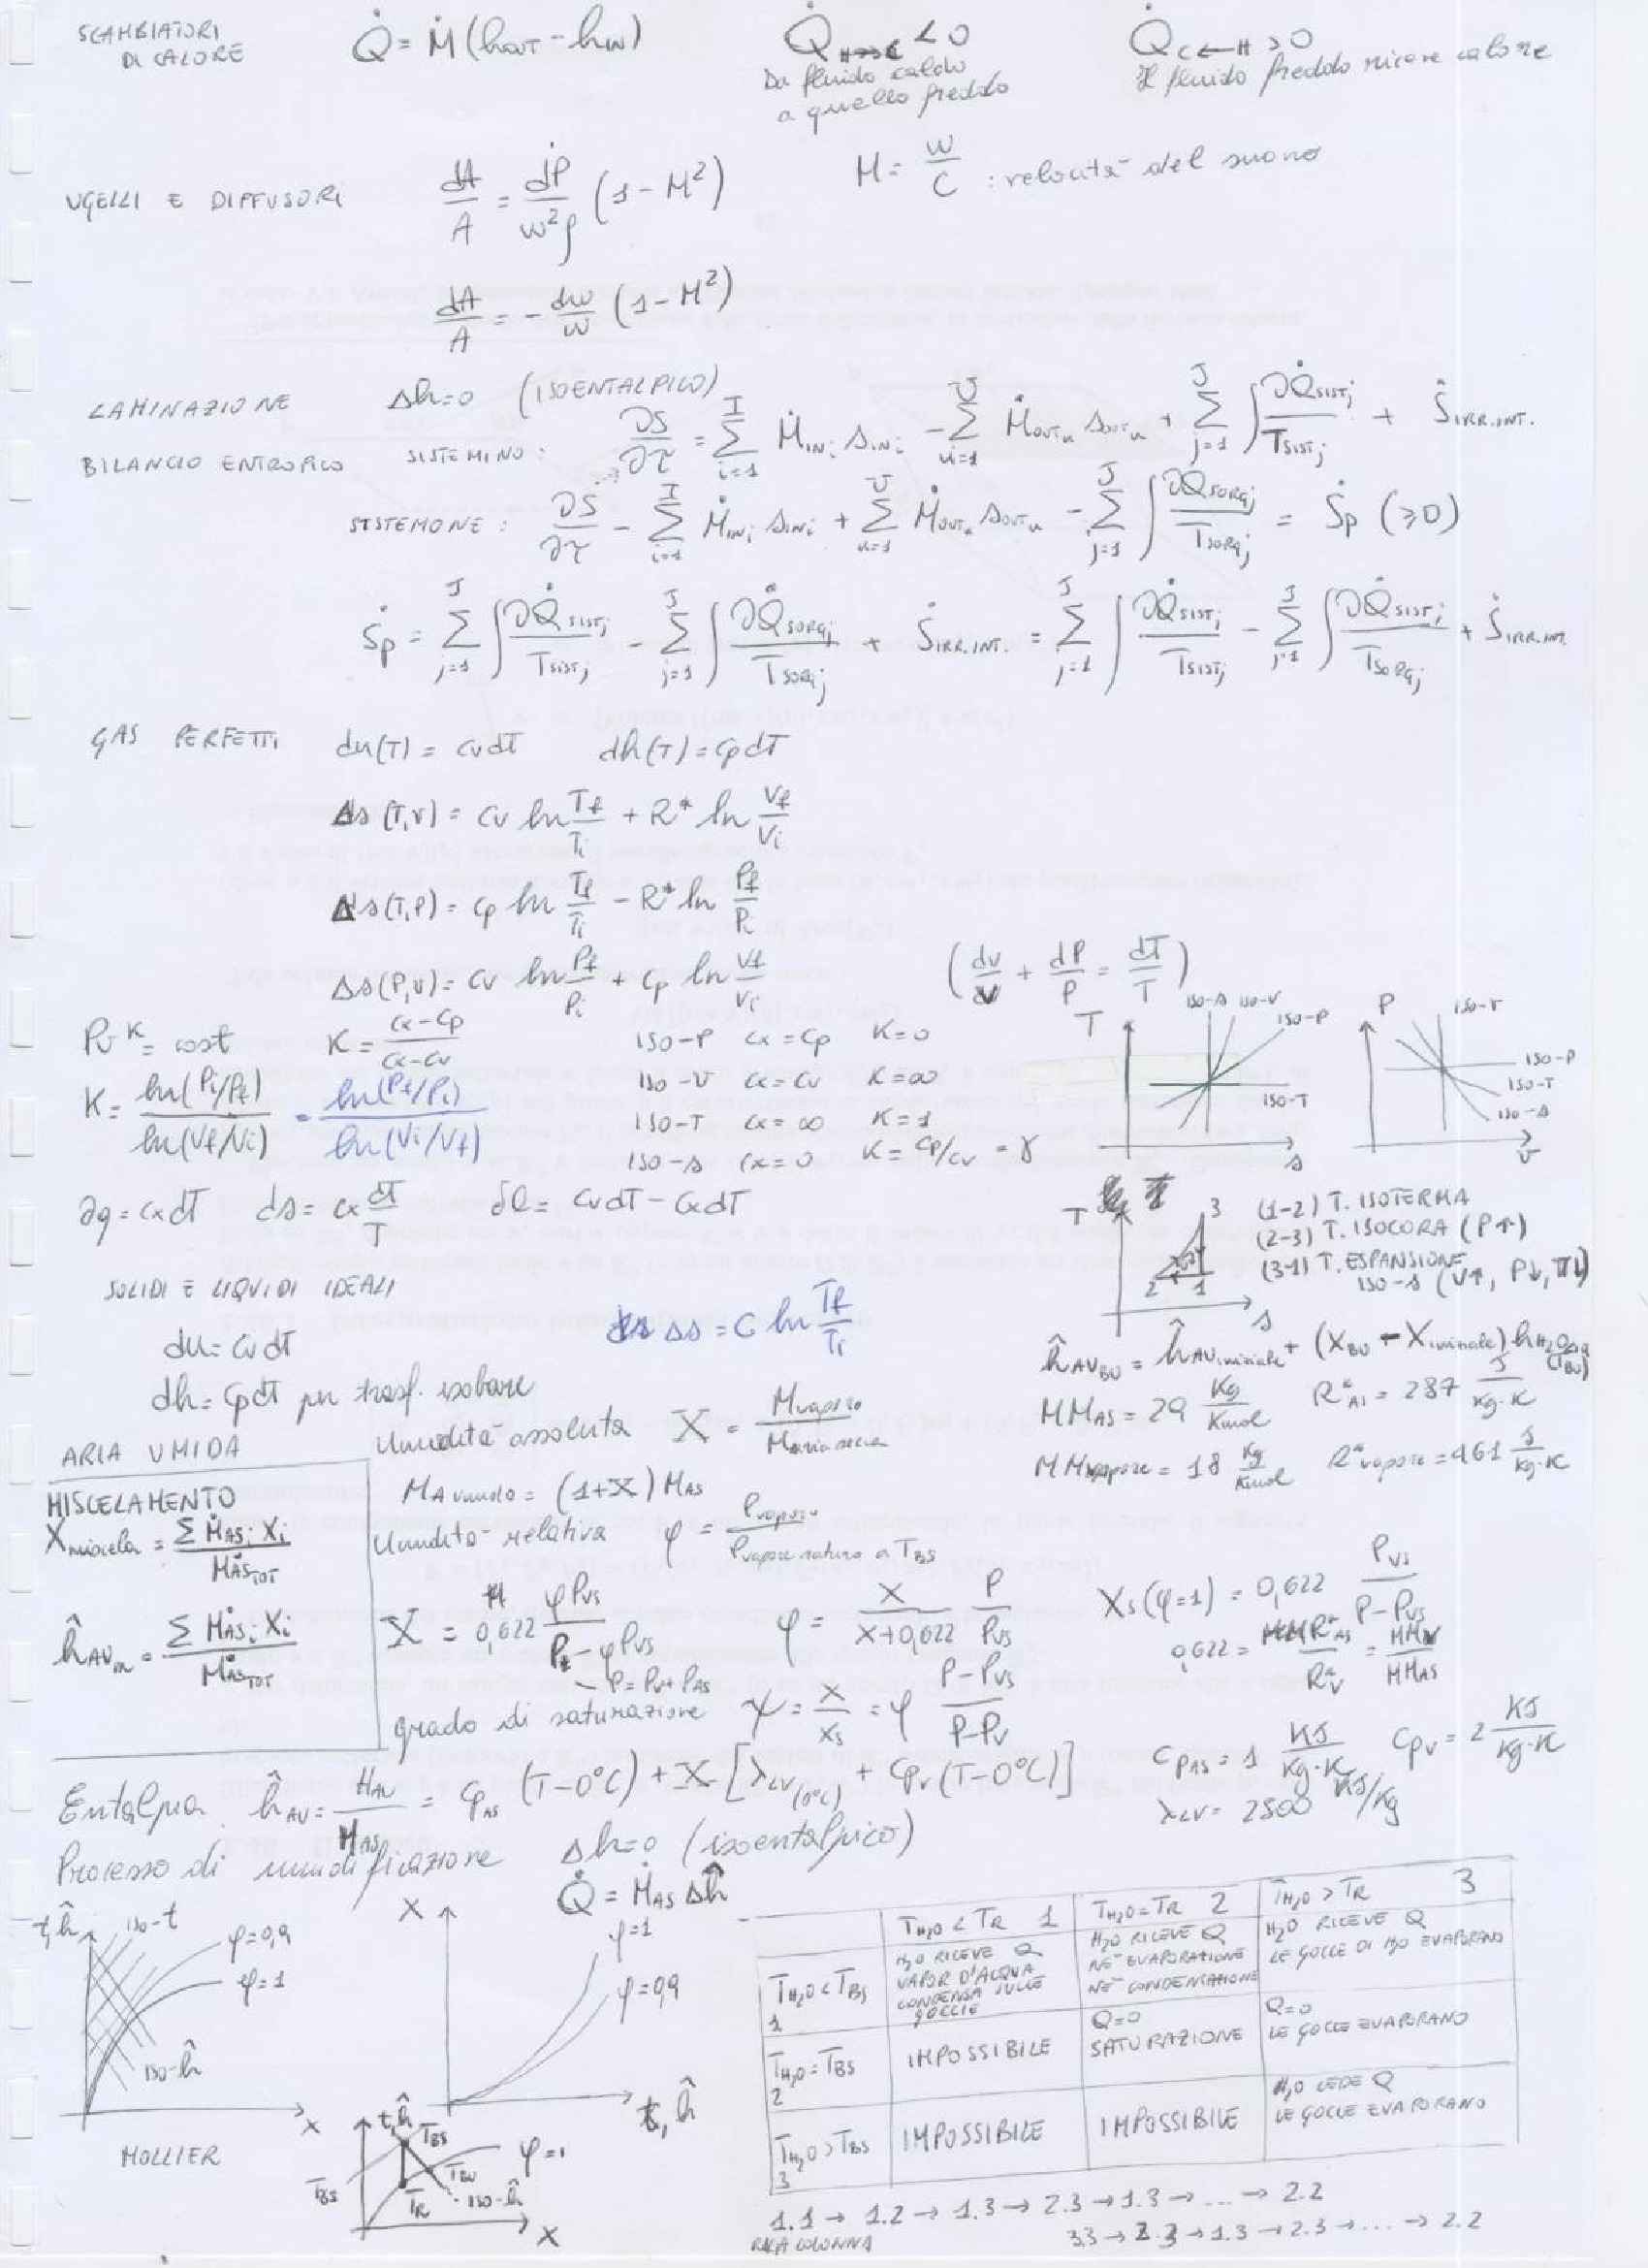 SCAMBIATORI DI CALORE Q̇ = Ṁ(h_OUT - h_IN) Q̇_H→C < 0 Q̇_C←H > 0
Da fluido caldo a quello freddo Il fluido freddo riceve calore
UGELLI E DIFFUSORI dA/A = dP/(w²ρ) (1 - M²) M = w/c : velocità del suono
dA/A = - dw/w (1 - M²)
LAMINAZIONE Δh=0 (ISOENTALPICO)
BILANCIO ENTROPICO SISTEMINO: ∂S/∂τ = Σ_{i=1}^{I} Ṁ_INi s_INi - Σ_{u=1}^{U} Ṁ_OUTu s_OUTu + Σ_{j=1}^{J} ∫ ∂Q̇_SISTj/T_SISTj + Ṡ_IRR.INT.
SISTEMONE: ∂S/∂τ - Σ_{i=1}^{I} Ṁ_INi s_INi + Σ_{u=1}^{U} Ṁ_OUTu s_OUTu - Σ_{j=1}^{J} ∫ ∂Q̇_SORGj/T_SORGj = Ṡp (≥0)
Ṡp = Σ_{j=1}^{J} ∫ ∂Q̇_SISTj/T_SISTj - Σ_{j=1}^{J} ∫ ∂Q̇_SORGj/T_SORGj + Ṡ_IRR.INT. = Σ_{j=1}^{J} ∫ ∂Q̇_SISTj/T_SISTj - Σ_{j=1}^{J} ∫ ∂Q̇_SISTj/T_SORGj + Ṡ_IRR.INT.
GAS PERFETTI du(T) = cv dT dh(T) = cp dT
Δs(T,v) = cv ln Tf/Ti + R* ln Vf/Vi
Δs(T,P) = cp ln Tf/Ti - R* ln Pf/Pi
Δs(P,v) = cv ln Pf/Pi + cp ln Vf/Vi (dv/v + dP/P = dT/T)
Pv^K = cost K = (cx-cp)/(cx-cv) ISO-P cx = cp K=0
K = ln(Pi/Pf)/ln(Vf/Vi) = ln(Pf/Pi)/ln(Vi/Vf) ISO-V cx = cv K=∞
ISO-T cx = ∞ K=1
ISO-s cx=0 K= cp/cv = γ
T ISO-s ISO-V ISO-P ISO-T s
P ISO-V ISO-P ISO-T ISO-s v
∂q = cx dT ds = cx dT/T δl = cv dT - cx dT
T 3 2 1 s
(1-2) T. ISOTERMA
(2-3) T. ISOCORA (P↑)
(3-1) T. ESPANSIONE ISO-s (V↑, P↓, T↓)
SOLIDI E LIQUIDI IDEALI Δs = C ln Tf/Ti
du = cv dT
dh = cp dT per trasf. isobare
ĥ_AV BU = ĥ_AV iniziale + (X_BU - X_iniziale) h_H₂O (T_BU)
MM_AS = 29 Kg/Kmol R*_AS = 287 J/kg·K
MM_vapore = 18 kg/Kmol R*_vapore = 461 J/kg·K
ARIA UMIDA Umidità assoluta X = M_vapore/M_aria secca
M_A umido = (1+X) M_AS
MISCELAMENTO
X_miscela = Σ Ṁ_ASi Xi / Ṁ_AS TOT
ĥ_AVm = Σ Ṁ_ASi Xi / Ṁ_AS TOT
Umidità relativa φ = P_vapore / P_vapore saturo a T_BS
X = 0,622 φPvs/(P - φPvs) φ = X/(X+0,622) P/Pvs Xs(φ=1) = 0,622 Pvs/(P-Pvs)
P = Pv + PAS
0,622 = R*_AS/R*_V = MMv/MM_AS
grado di saturazione ψ = X/Xs = φ (P-Pvs)/(P-Pv)
Entalpia ĥ_AV = H_AV/M_AS = cp_AS (T-0°C) + X [λ_LV(0°C) + cp_v (T-0°C)]
cp_AS = 1 KJ/kg·K cp_v = 2 KJ/kg·K
λ_LV = 2500 KJ/kg
Processo di umidificazione Δh=0 (isoentalpico)
Q̇ = Ṁ_AS Δĥ
t,ĥ iso-t φ=0,9 φ=1 iso-ĥ X
MOLLIER
X φ=1 φ=0,9 t, ĥ
t,ĥ T_BS T_BS φ=1 T_BU T_R iso-ĥ X
T_H₂O < T_R 1 T_H₂O = T_R 2 T_H₂O > T_R 3
T_H₂O < T_BS 1 H₂O RICEVE Q VAPOR D'ACQUA CONDENSA SULLE GOCCIE H₂O RICEVE Q NE' EVAPORAZIONE NE' CONDENSAZIONE H₂O RICEVE Q LE GOCCE DI H₂O EVAPORANO
T_H₂O = T_BS 2 IMPOSSIBILE Q=0 SATURAZIONE Q=0 LE GOCCE EVAPORANO
T_H₂O > T_BS 3 IMPOSSIBILE IMPOSSIBILE H₂O CEDE Q LE GOCCE EVAPORANO
1.1 → 1.2 → 1.3 → 2.3 → 1.3 → ... → 2.2
RIGA COLONNA 3.3 → 2.3 → 1.3 → 2.3 → ... → 2.2